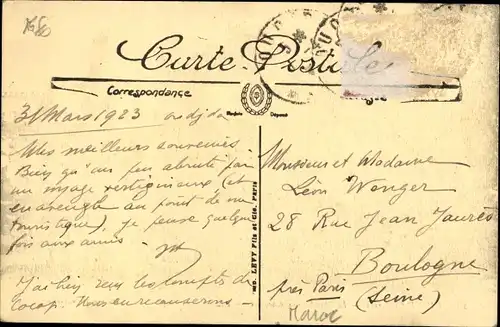 Carte Postale
Correspondance
Marque Déposé
31 Mars 1923 Oudjda
Mes meilleurs souvenirs.
Bien qu'un peu abruti par
un voyage vertigineux (et
en aveugle au point de vue
touristique), je pense quelque
fois aux amis.
J'ai bien reçu les comptes de
Cocop. Nous en recauserons.
LEVY Fils et Cie, Paris
Monsieur et Madame
Léon Wenger
28 Rue Jean Jaurès
Boulogne
près Paris (Seine)
Maroc